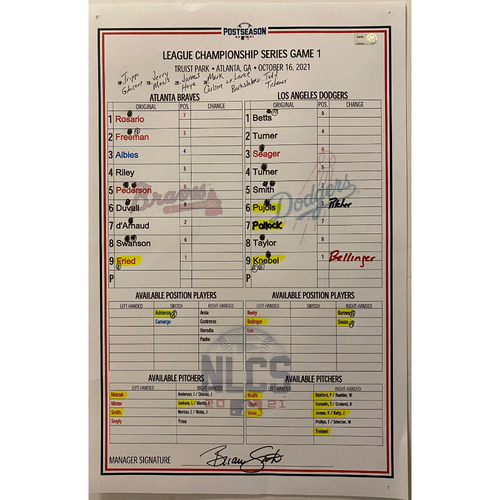 POSTSEASON
2021
LEAGUE CHAMPIONSHIP SERIES GAME 1
TRUIST PARK • ATLANTA, GA • OCTOBER 16, 2021
Tripp Jerry James Mark Lance Todd
Gibson Meals Hoye Carlson Barksdale Tichenor
ATLANTA BRAVES
ORIGINAL POS. CHANGE
1 Rosario 7
2 Freeman 3
3 Albies 4
4 Riley 5
5 Pederson 9
6 Duvall 8
7 d'Arnaud 2
8 Swanson 6
9 Fried 1
P
Braves
LOS ANGELES DODGERS
ORIGINAL POS. CHANGE
1 Betts 9
2 Turner
3 Seager
4 Turner
5 Smith
6 Pujols Pitcher
7 Pollock
8 Taylor
9 Knebel 1 Bellinger
P
Dodgers
AVAILABLE POSITION PLAYERS
LEFT-HANDED SWITCH RIGHT-HANDED
Adrianza Arcia
Camargo Contreras
Heredia
Pache
AVAILABLE POSITION PLAYERS
LEFT-HANDED SWITCH RIGHT-HANDED
Beaty Barnes
Bellinger Souza
Lux
NLCS
2021
AVAILABLE PITCHERS
LEFT-HANDED RIGHT-HANDED
Matzek Anderson, I / Chavez, J
Minter Jackson, L / Martin, C
Smith Morton, C / Webb, J
Smyly Ynoa
AVAILABLE PITCHERS
LEFT-HANDED RIGHT-HANDED
Bruihl Bickford, P / Buehler, W
Urías Gonsolin, T / Graterol, B
Vesia Jansen, K / Kelly, J
Phillips, E / Scherzer, M
Treinen
MANAGER SIGNATURE